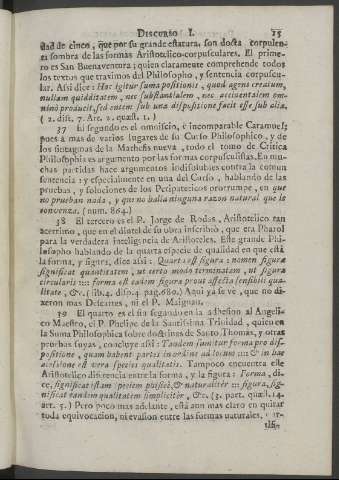 DISCURSO I. 15
dad de cinco, que por su grande estatura, son docta corpulen-
cia sombra de las formas Aristotelico-corpusculares. El prime-
ro es San Buenaventura; quien claramente comprehende todos
los textos que traximos del Philosopho, y sentencia corpuscu-
lar. Assi dice: Hoc igitur suma positionis, quod agens creatum,
nullam quidditatem, nec substantialem, nec accidentalem om-
ninò producit, sed entem sub una dispositione facit esse sub alia.
(2. dist. 7. Art. 2. quæst. 1.)
37 El segundo es el omniscio, è incomparable Caramuel;
pues à mas de varios lugares de su Curso Philosophico, y de
los de la Mathesis nueva, todo el tomo de Critica
Philosophia es argumento por las formas corpusculistas. En mu-
chas partidas hace argumentos indisolubles contra la comun
sentencia: y especialmente en una del Curso, hablando de las
pruebas, y soluciones de los Peripateticos prorrumpe, en que
no prueban nada, y que no halla ninguna razon natural que le
convenza. (num. 864.)
38 El tercero es el P. Jorge de Rodas, Aristotelico tan
acerrimo, que en el dintel de su obra inscribiò, que era Pharol
para la verdadera inteligencia de Aristoteles. Este grande Phi-
losopho hablando de la quarta especie de qualidad en que està
la forma, y figura, dice assi: Quarta est figura: nomen figuræ
significat quantitatem, ut certo modo terminatam, ut figura
circularis :::: forma est eadem figura prout affecta sensibili qua-
litate, &c. (lib. 4. disp. 4. pag. 680.) Aqui ya se vè, que no di-
xeron mas Descartes, ni el P. Maignan.
39 El quarto es el sin segundo en la adhesion al Angeli-
co Maestro, el P. Phelipe de la Santissima Trinidad, quien en
la Suma Philosophica sobre doctrinas de Santo Thomas, y otras
pruebas suyas, concluye assi: Tandem sumitur forma pro dis-
positione, quam habent partes in ordine ad locum :::: & in hac
acceptione est vera species qualitatis. Tampoco encuentra este
Aristotelico diferencia entre la forma, y la figura: Forma, di-
ce, significat istam speciem phisicè, & naturaliter ::: figura, sig-
nificat eandem qualitatem simpliciter, &c. (3. part. quæst. 14.
art. 5.) Pero poco mas adelante, està aun mas claro en quitar
toda equivocacion, ni evasion entre las formas naturales,